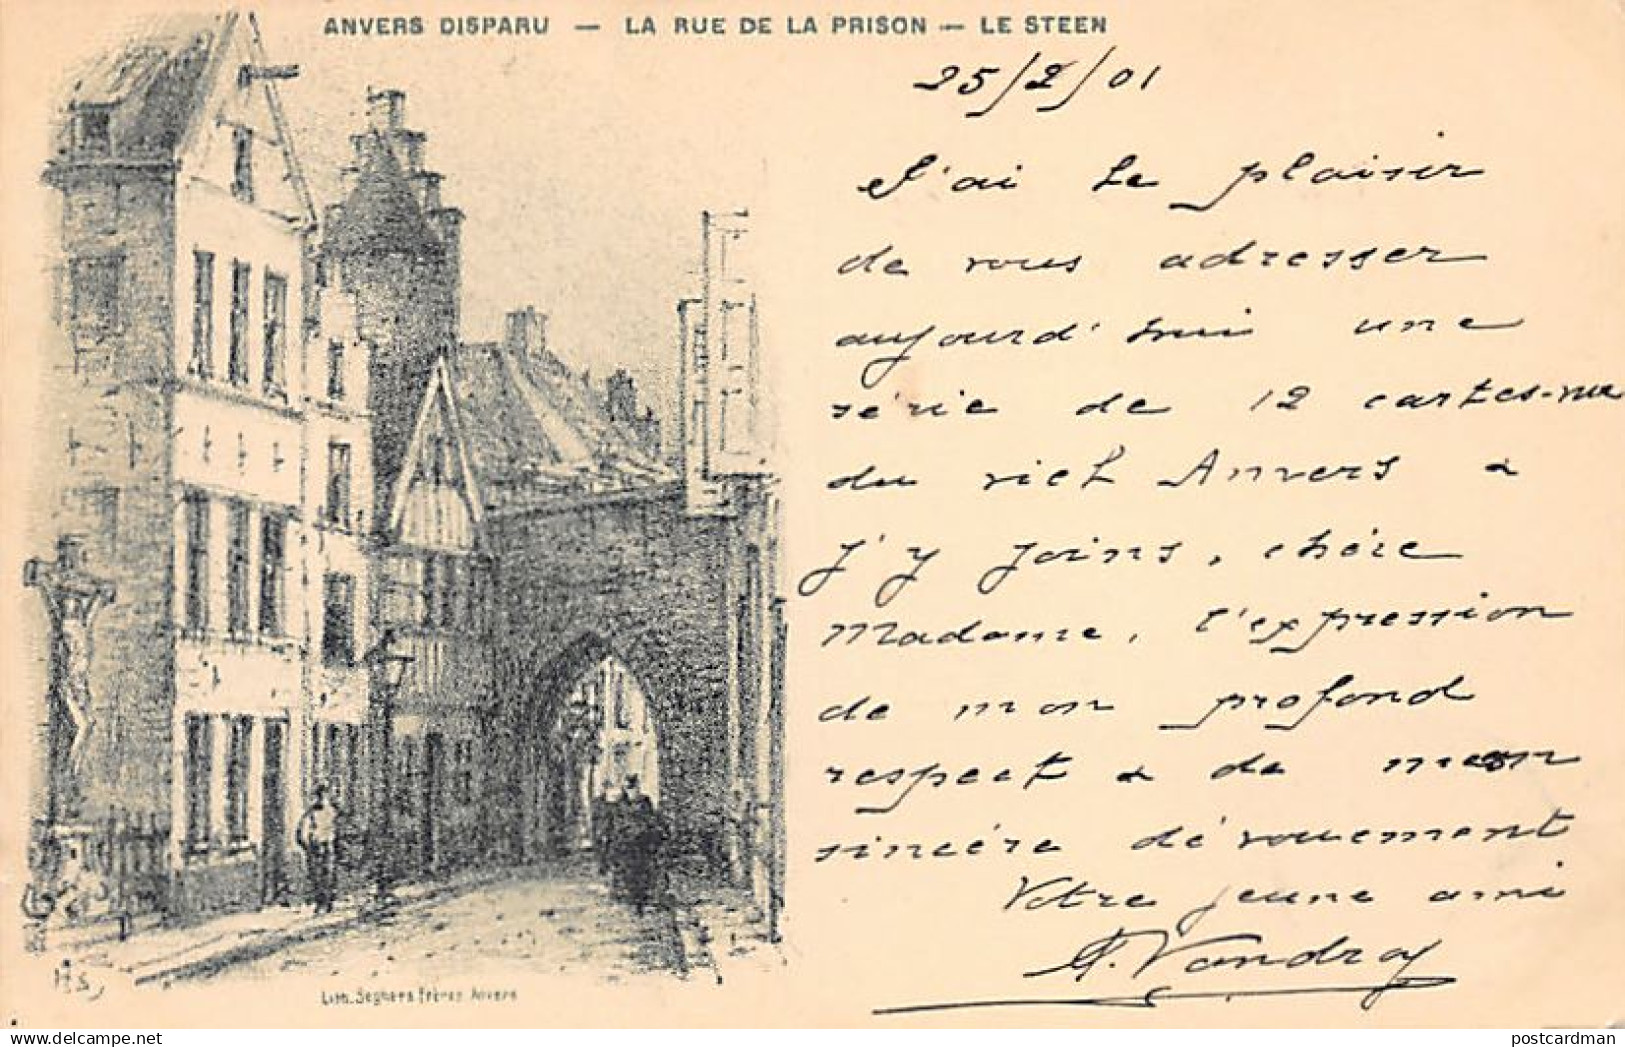 ANVERS DISPARU — LA RUE DE LA PRISON — LE STEEN
25/2/01
J'ai le plaisir
de vous adresser
aujourd'hui une
série de 12 cartes-vue
du vieil Anvers &
j'y joins, chère
Madame, l'expression
de mon profond
respect & de mon
sincère dévouement
Votre jeune ami
Vandroy
HS
Lith. Seghers Frères Anvers
postcardman